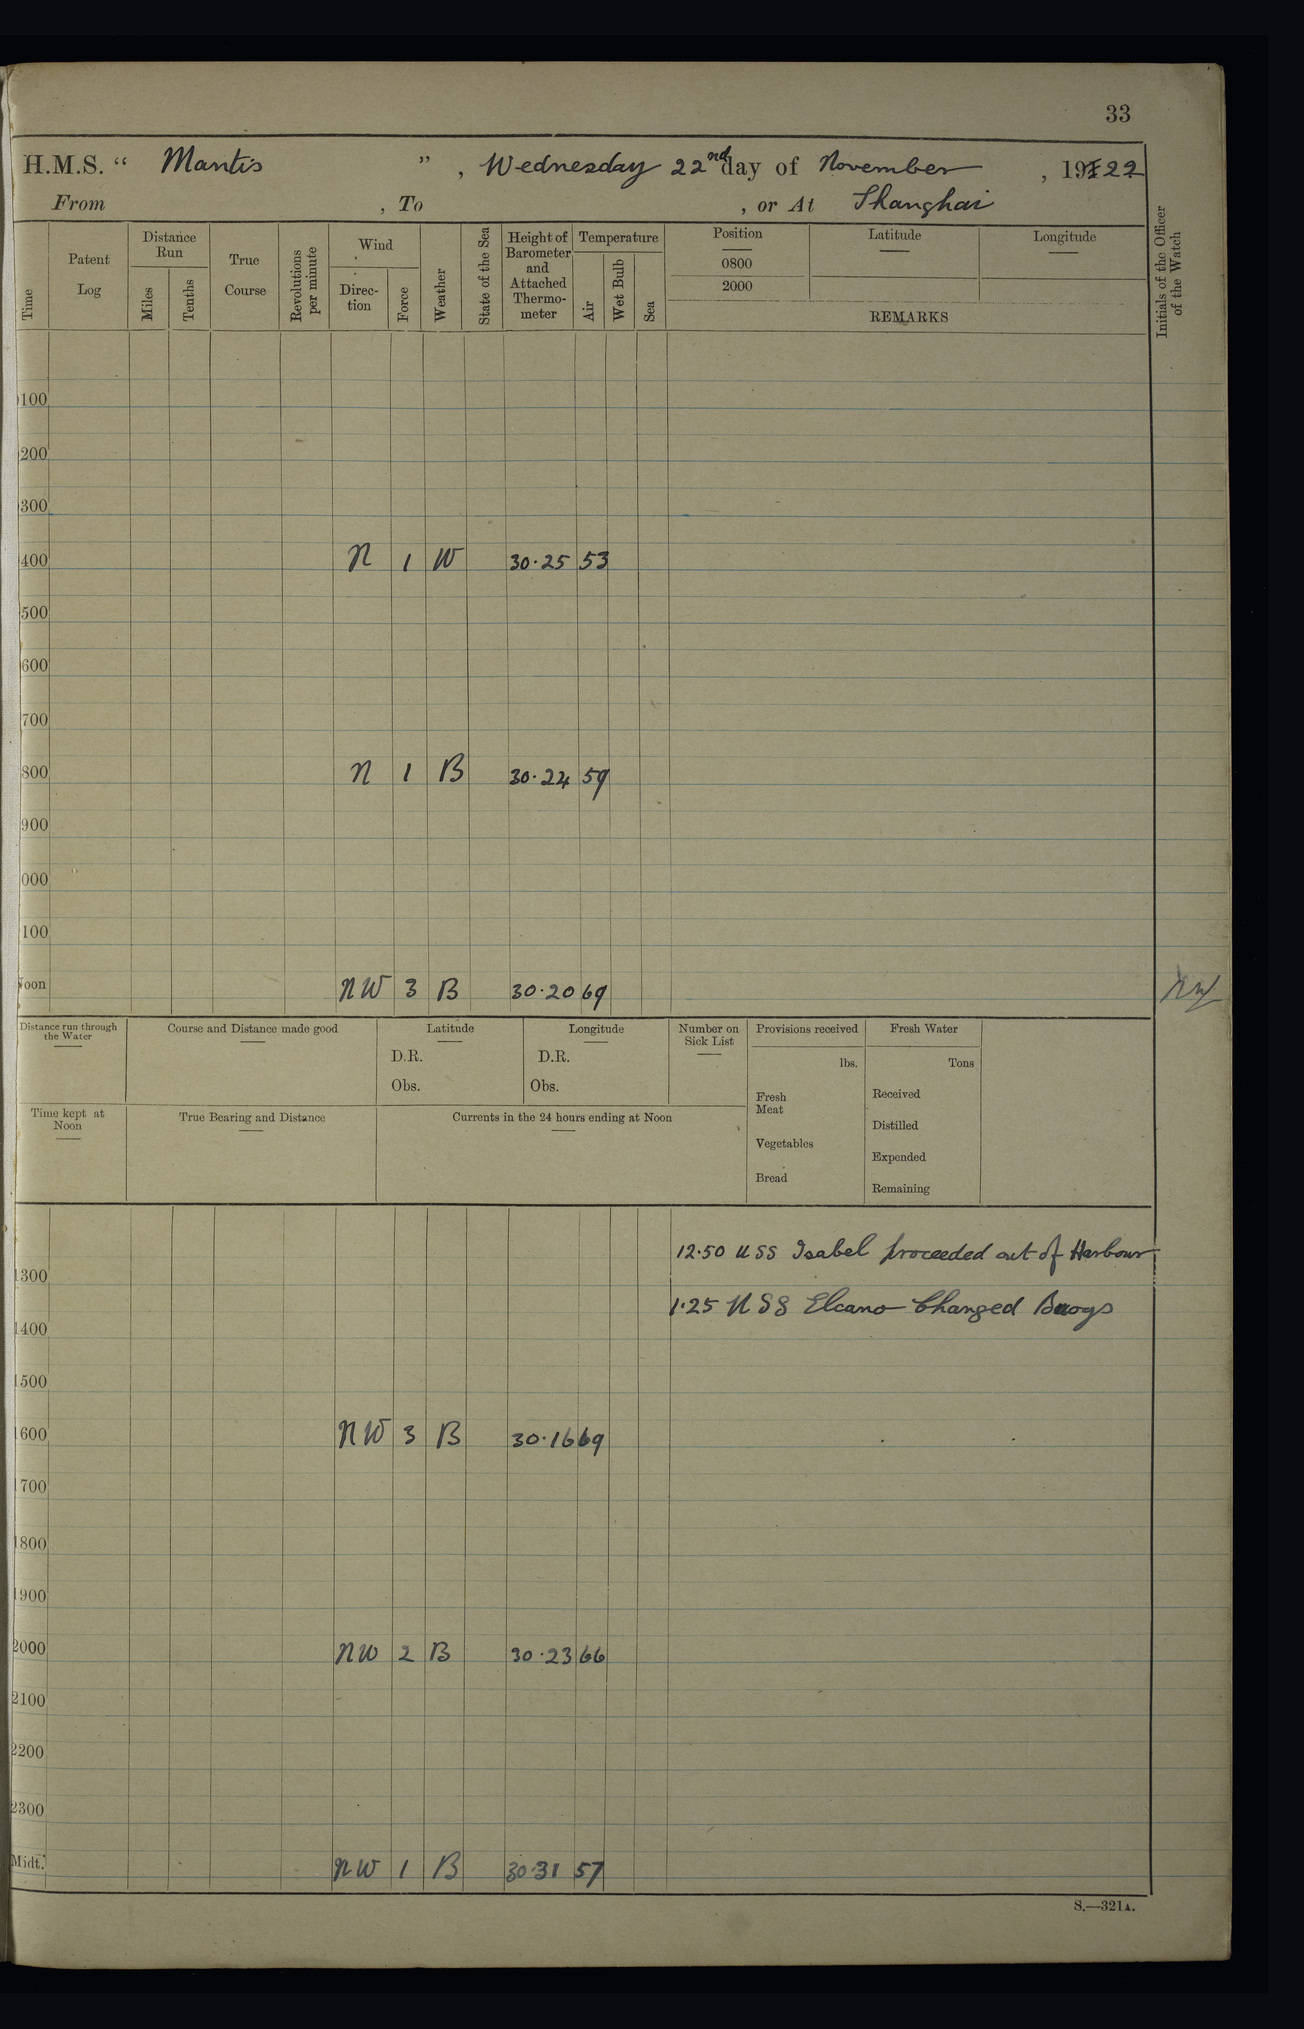 33
H.M.S. “ Mantis ” , Wednesday 22nd day of November , 1922
From , To , or At Shanghai
Time
Patent Log
Distance Run
Miles
Tenths
True Course
Revolutions per minute
Wind
Direc-tion
Force
Weather
State of the Sea
Height of Barometer and Attached Thermo-meter
Temperature
Air
Wet Bulb
Sea
Position
0800
2000
Latitude
Longitude
REMARKS
Initials of the Officer of the Watch
100
200
300
400 N 1 W 30.25 53
500
600
700
800 N 1 B 30.24 59
900
000
100
Noon NW 3 B 30.20 69
Distance run through the Water
Course and Distance made good
Latitude
D.R.
Obs.
Longitude
D.R.
Obs.
Number on Sick List
Provisions received
lbs.
Fresh Meat
Vegetables
Bread
Fresh Water
Tons
Received
Distilled
Expended
Remaining
Time kept at Noon
True Bearing and Distance
Currents in the 24 hours ending at Noon
12.50 USS Isabel proceeded out of Harbour
1300
1.25 USS Elcano Changed Buoys
1400
1500
1600 NW 3 B 30.16 69
1700
1800
1900
2000 NW 2 B 30.23 66
2100
2200
2300
Midt. NW 1 B 30.31 57
S.—321A.